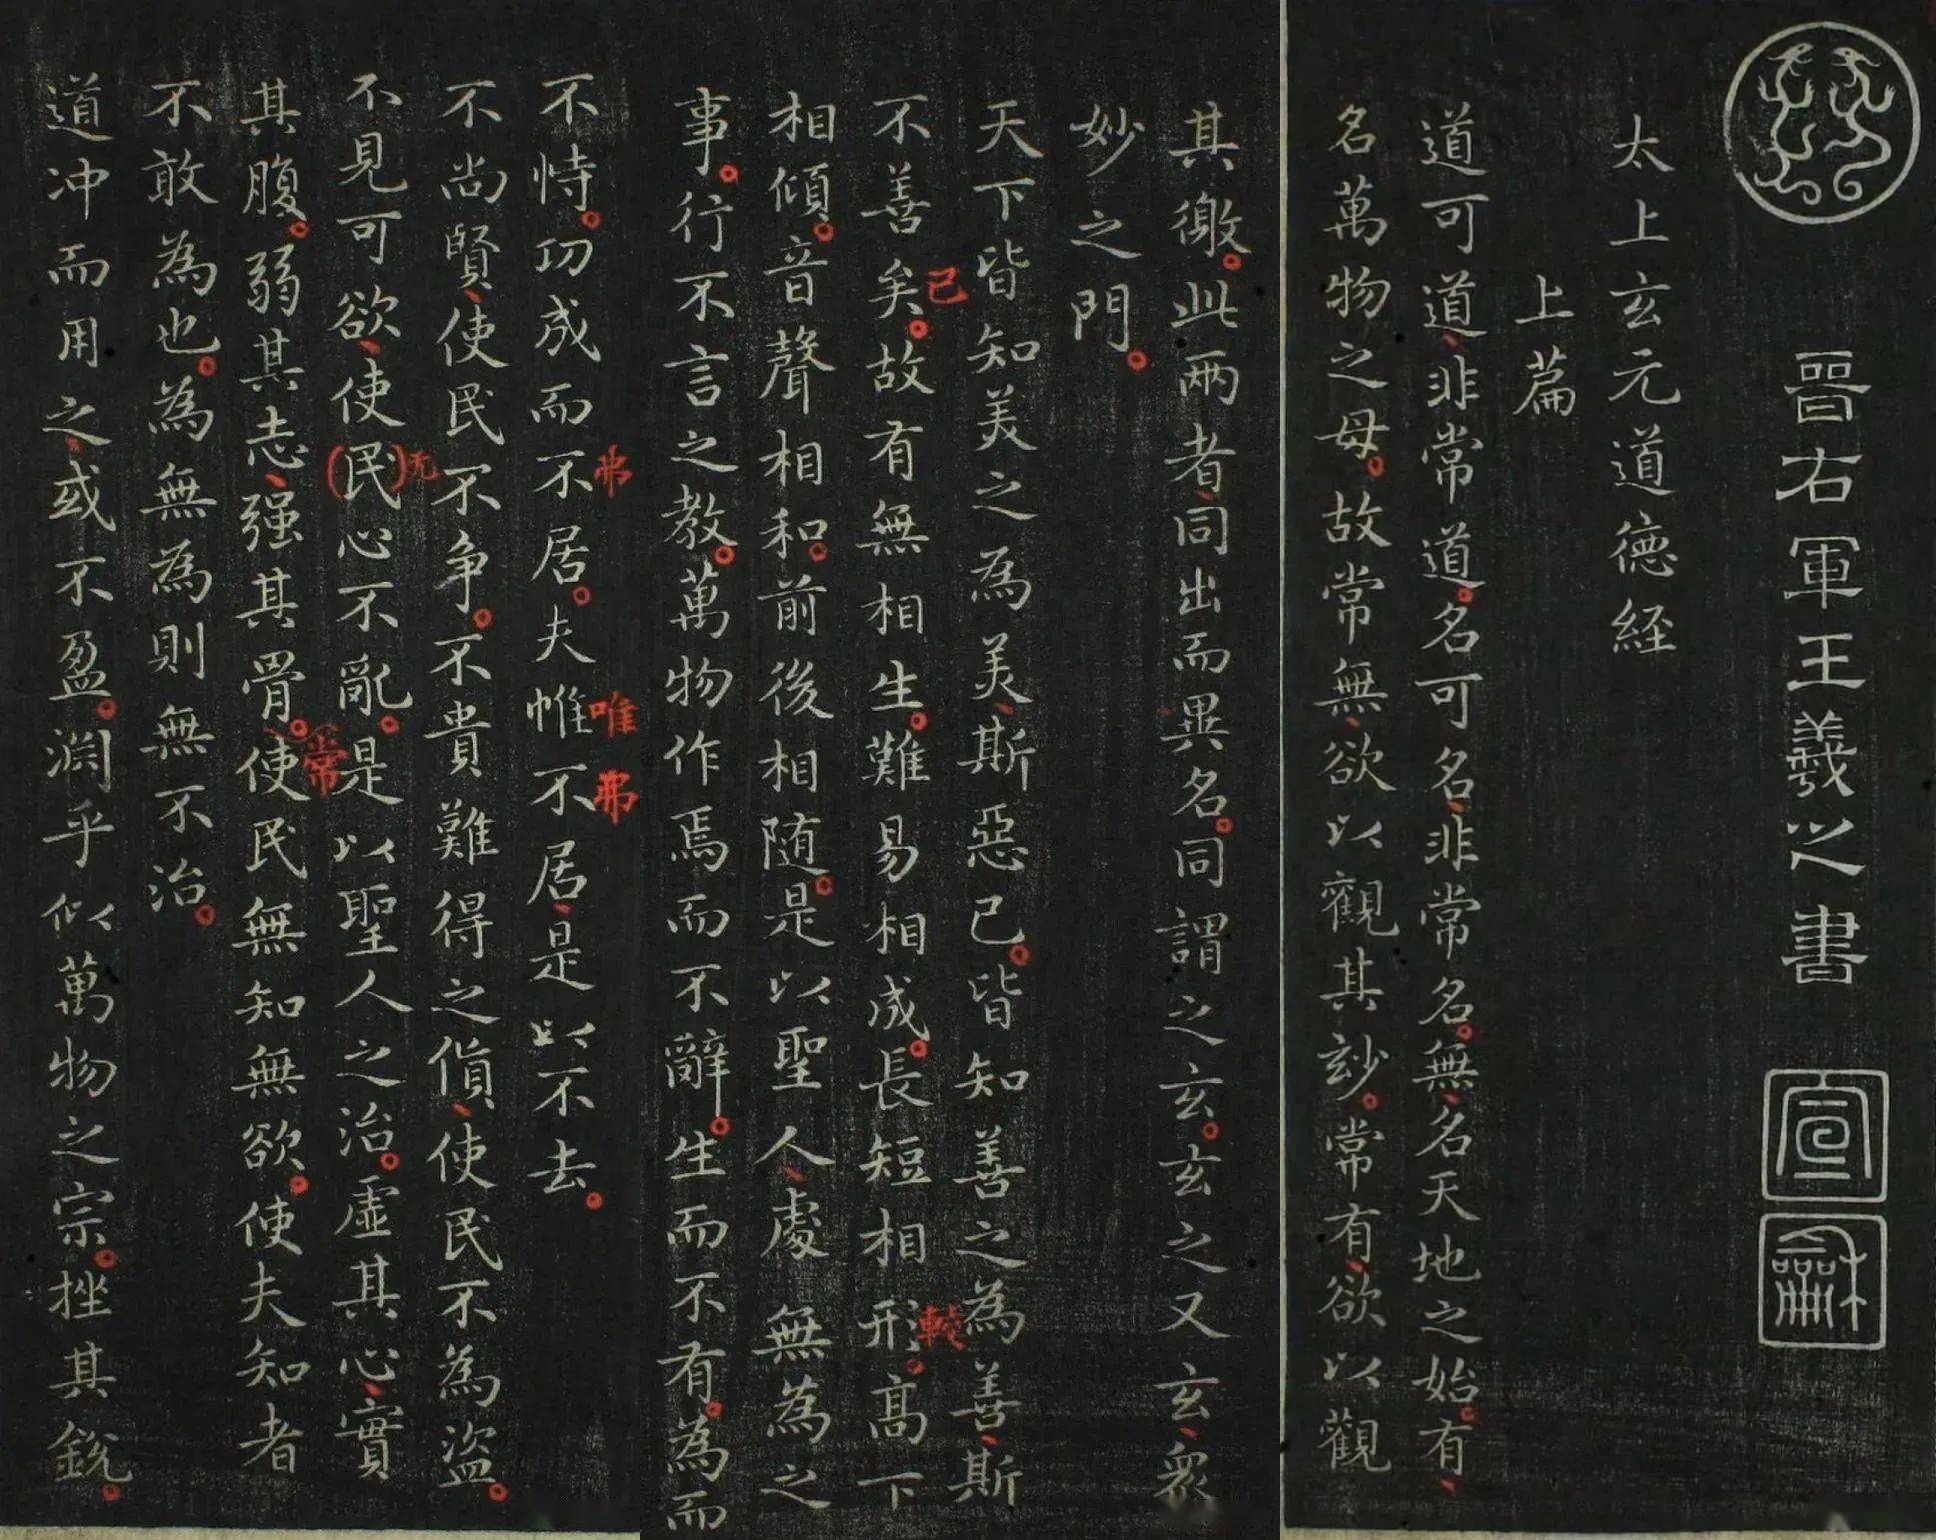 晉右軍王羲之書
宣
龢
太上玄元道德経
上篇
道可道、非常道。名可名、非常名。無、名天地之始。有、
名萬物之母。故常無、欲以觀其玅。常有、欲以觀
其徼。此兩者、同出而異名。同謂之玄。玄之又玄、衆
妙之門。
天下皆知美之為美、斯惡已。皆知善之為善、斯
已
較
不善矣。故有無相生。難易相成。長短相形。高下
相傾。音聲相和。前後相随。是以聖人、處無為之
事。行不言之教。萬物作焉而不辭。生而不有。為而
弗
唯
弗
不恃。功成而不居。夫惟不居、是以不去。
不尚賢、使民不争。不貴難得之貨、使民不為盜。
无
不見可欲、使(民)心不亂。是以聖人之治。虛其心、實
(常)
其腹。弱其志、强其骨。使民無知無欲。使夫知者
不敢為也。為無為則無不治。
道冲而用之、或不盈。淵乎似萬物之宗。挫其銳。